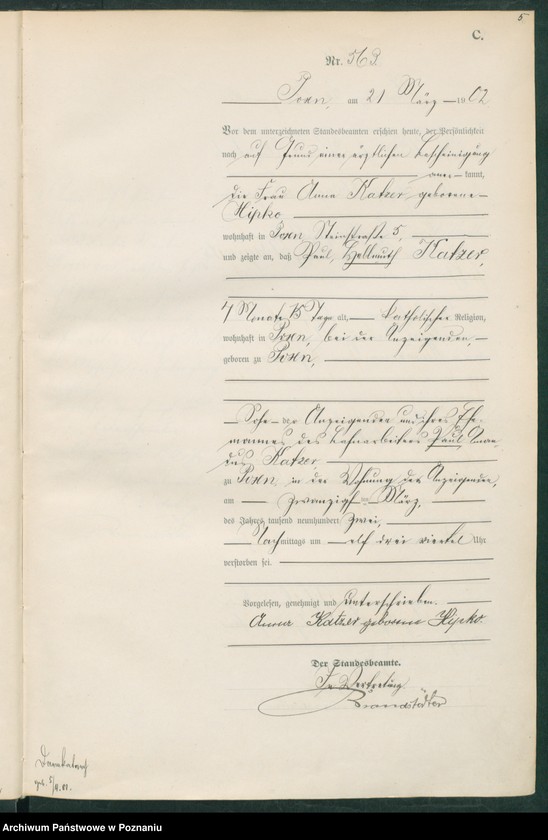 5
C.
Nr. 563
Posen, am 21 März 1902
Vor dem unterzeichneten Standesbeamten erschien heute, der Persönlichkeit
nach auf Grund einer ärztlichen Bescheinigung
aner- kannt,
die Frau Anna Katzer, geborene
Hipko
wohnhaft in Posen, Steinstraße 5,
und zeigte an, daß Paul, Hellmuth Katzer,
4 Monate 15 Tage alt, katholischer Religion,
wohnhaft in Posen, bei der Anzeigenden,
geboren zu Posen,
Sohn der Anzeigenden und ihres Ehe-
mannes des Bahnarbeiters Paul
Katzer
zu Posen in der Wohnung der Anzeigenden,
am zwanzigsten März,
des Jahres tausend neunhundert zwei,
Nachmittags um elf drei viertel Uhr
verstorben sei.
Vorgelesen, genehmigt und unterschrieben.
Anna Katzer geborene Hipko.
Der Standesbeamte.
In Vertretung
Brandstädter
Archiwum Państwowe w Poznaniu